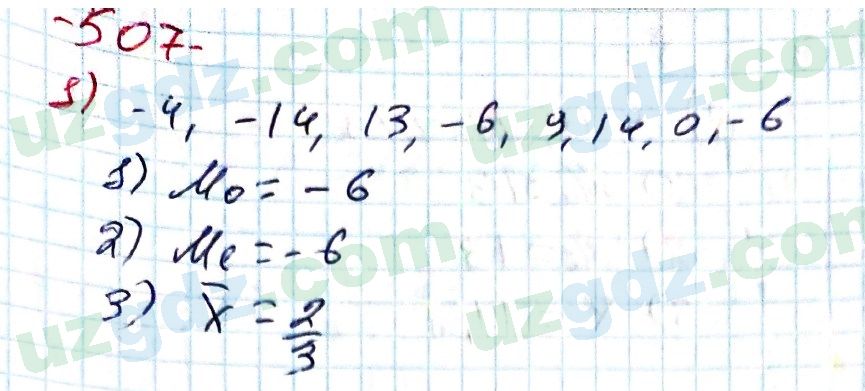 -507-
1) -4, -14, 13, -6, 9, 14, 0, -6
1) Mo = -6
2) Me = -6
3) x̄ = 2/3
uzgdz.com
uzgdz.com
uzgdz.com
uzgdz.com